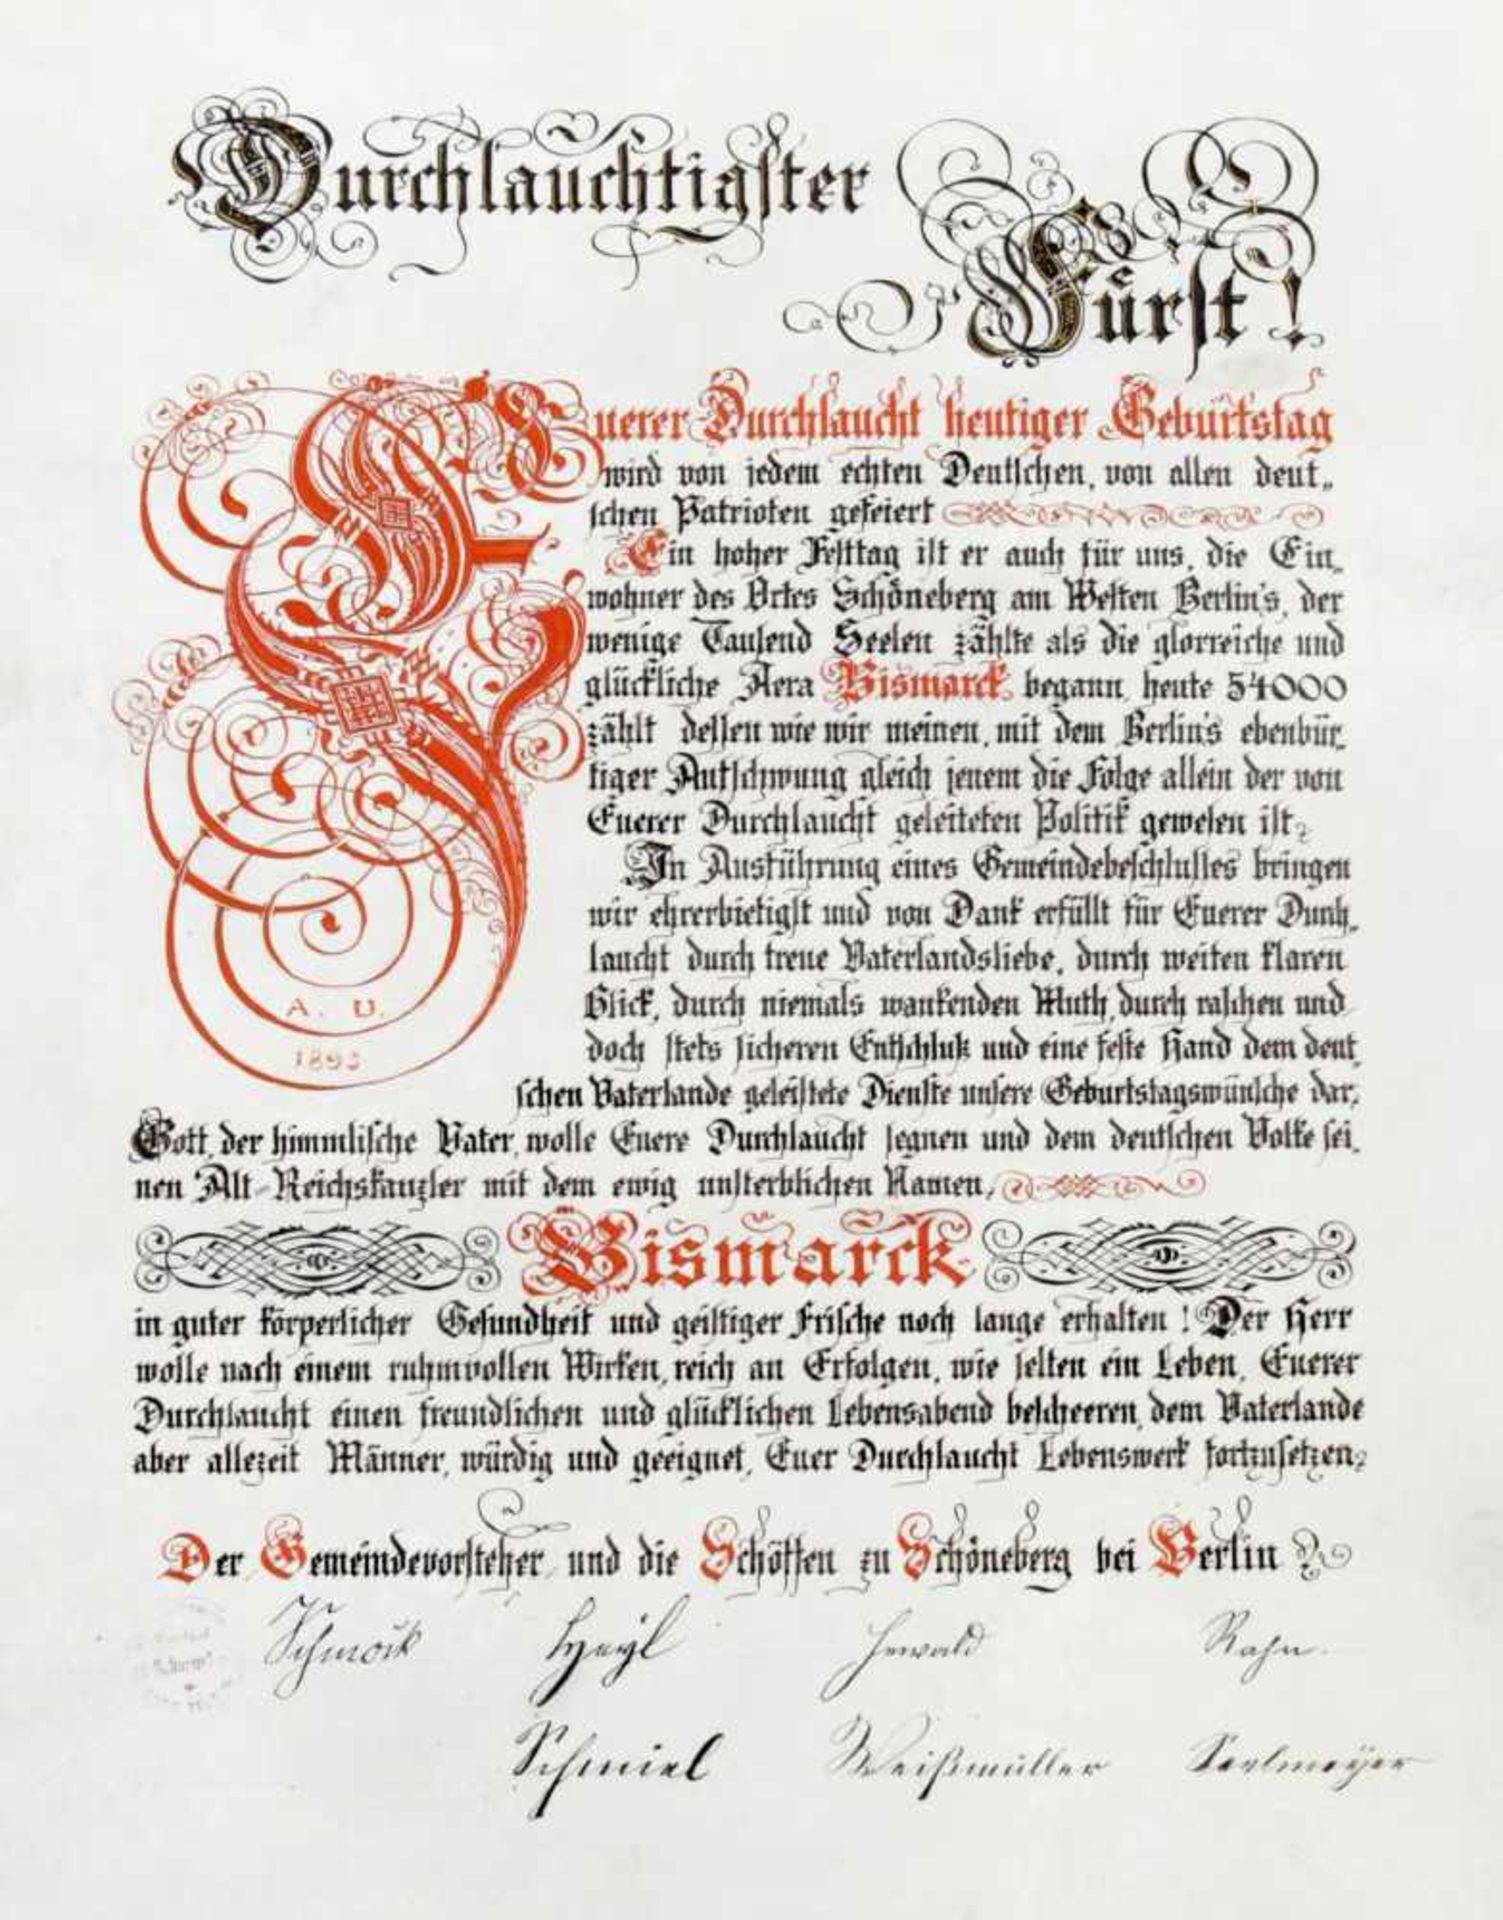 Durchlauchtigster
Fürst!
Euerer Durchlaucht heutiger Geburtstag
wird von jedem echten Deutschen, von allen deut„
schen Patrioten gefeiert
Ein hoher Festtag ist er auch für uns, die Ein„
wohner des Ortes Schöneberg am Westen Berlin's, der
wenige Tausend Seelen zählte als die glorreiche und
glückliche Aera Bismarck begann, heute 54000
zählt dessen wie wir meinen, mit dem Berlin's ebenbür„
tiger Aufschwung gleich jenem die Folge allein der von
Euerer Durchlaucht geleiteten Politik gewesen ist.
In Ausführung eines Gemeindebeschlusses bringen
wir ehrerbietigst und von Dank erfüllt für Euerer Durch„
laucht durch treue Vaterlandsliebe, durch weiten klaren
Blick, durch niemals wankenden Muth, durch raschen und
doch stets sicheren Entschluß und eine feste Hand dem deut„
schen Vaterlande geleistete Dienste unsere Geburtstagswünsche dar.
A. D.
1895
Gott, der himmlische Vater, wolle Euere Durchlaucht segnen und dem deutschen Volke sei„
nen Alt-Reichskanzler mit dem ewig unsterblichen Namen,
Bismarck
in guter körperlicher Gesundheit und geistiger Frische noch lange erhalten! Der Herr
wolle nach einem ruhmvollen Wirken, reich an Erfolgen, wie selten ein Leben, Euerer
Durchlaucht einen freundlichen und glücklichen Lebensabend bescheeren, dem Vaterlande
aber allezeit Männer, würdig und geeignet, Euer Durchlaucht Lebenswerk fortzusetzen.
Der Gemeindevorsteher und die Schöffen zu Schöneberg bei Berlin
Schmock Heyl Hewald Rahn.
Schmiel Weißmüller